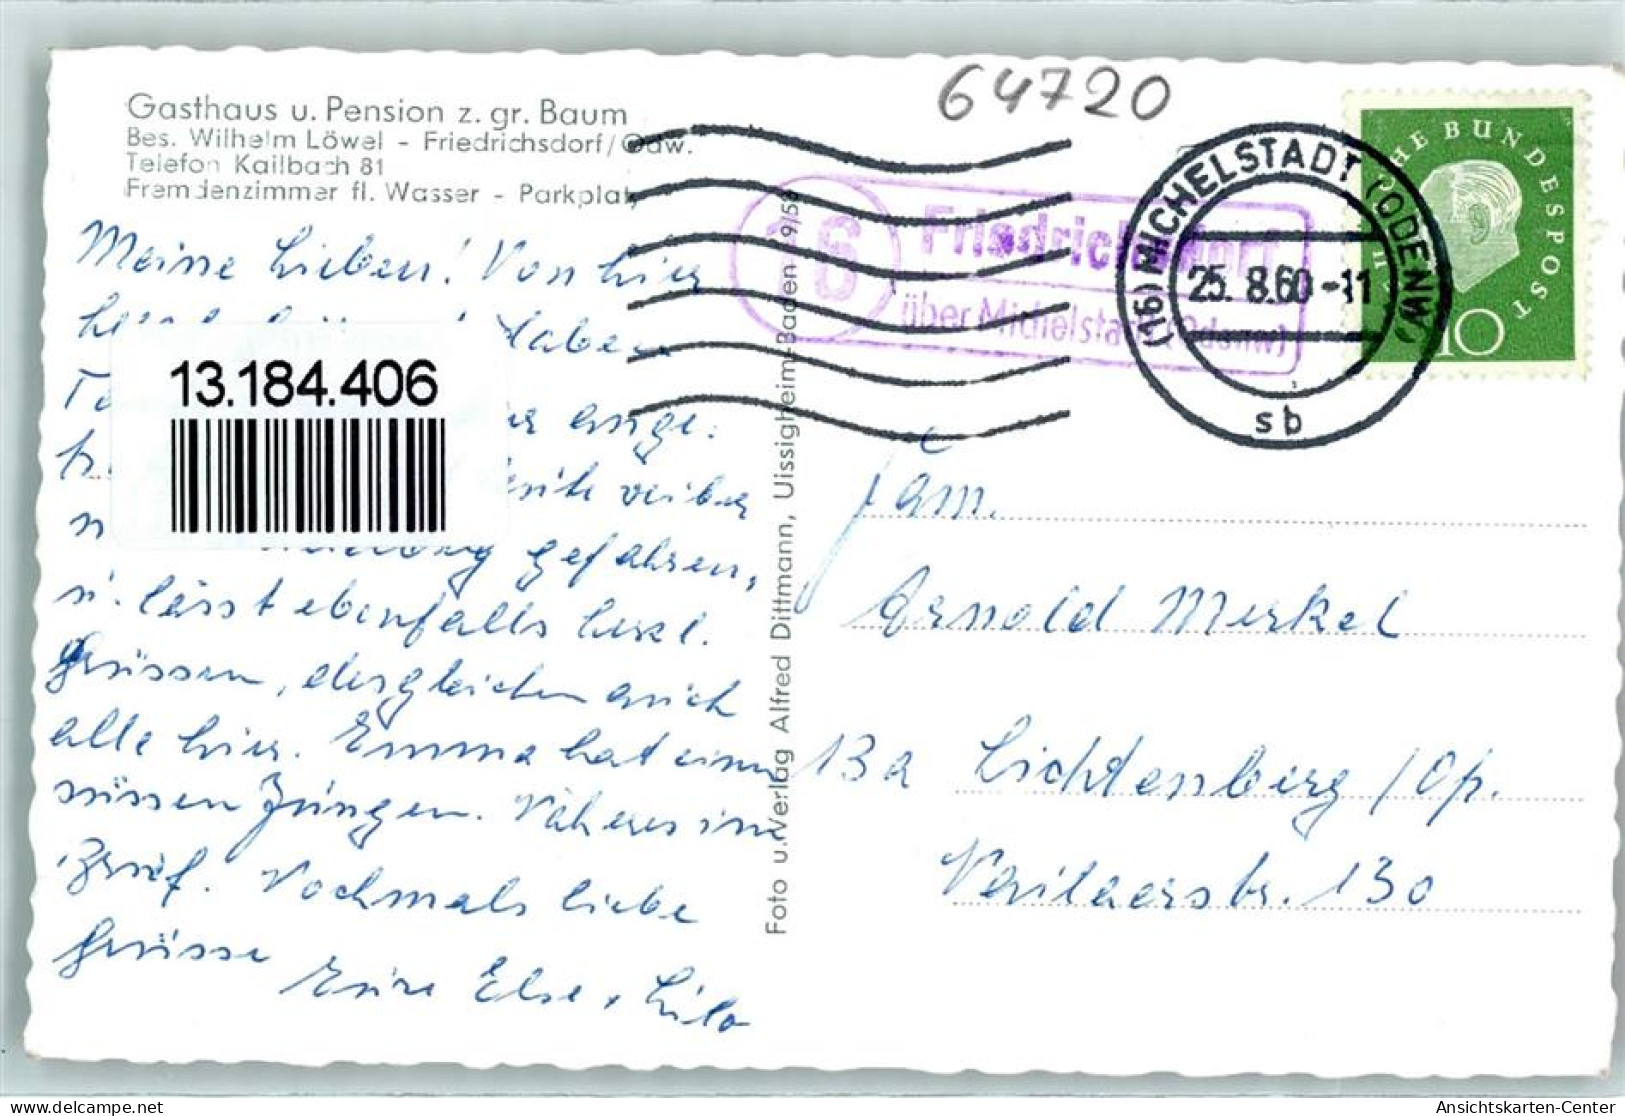 Gasthaus u. Pension z. gr. Baum
Bes. Wilhelm Löwel - Friedrichsdorf/Odw.
Telefon Kailbach 81
Fremdenzimmer fl. Wasser - Parkplatz
64720
HE BUNDESPOST
10
(16) MICHELSTADT (ODENW)
25.8.60-11
sb
16
Friedrichsdorf
über Michelstadt (Odenw)
Meine Lieben! Von hier
haben
13.184.406
gefahren,
u. lässt ebenfalls herzl.
Grüssen, desgleichen auch
alle hier. Emma hat einen
süssen Jungen. Näheres im
Brief. Nochmals liebe
Grüsse
Eure Else + Lilo
Foto u. Verlag Alfred Dittmann, Uissigheim-Baden
Fam.
Arnold Merkel
13a Lichtenberg/Op.
130
Ansichtskarten-Center
delcampe.net